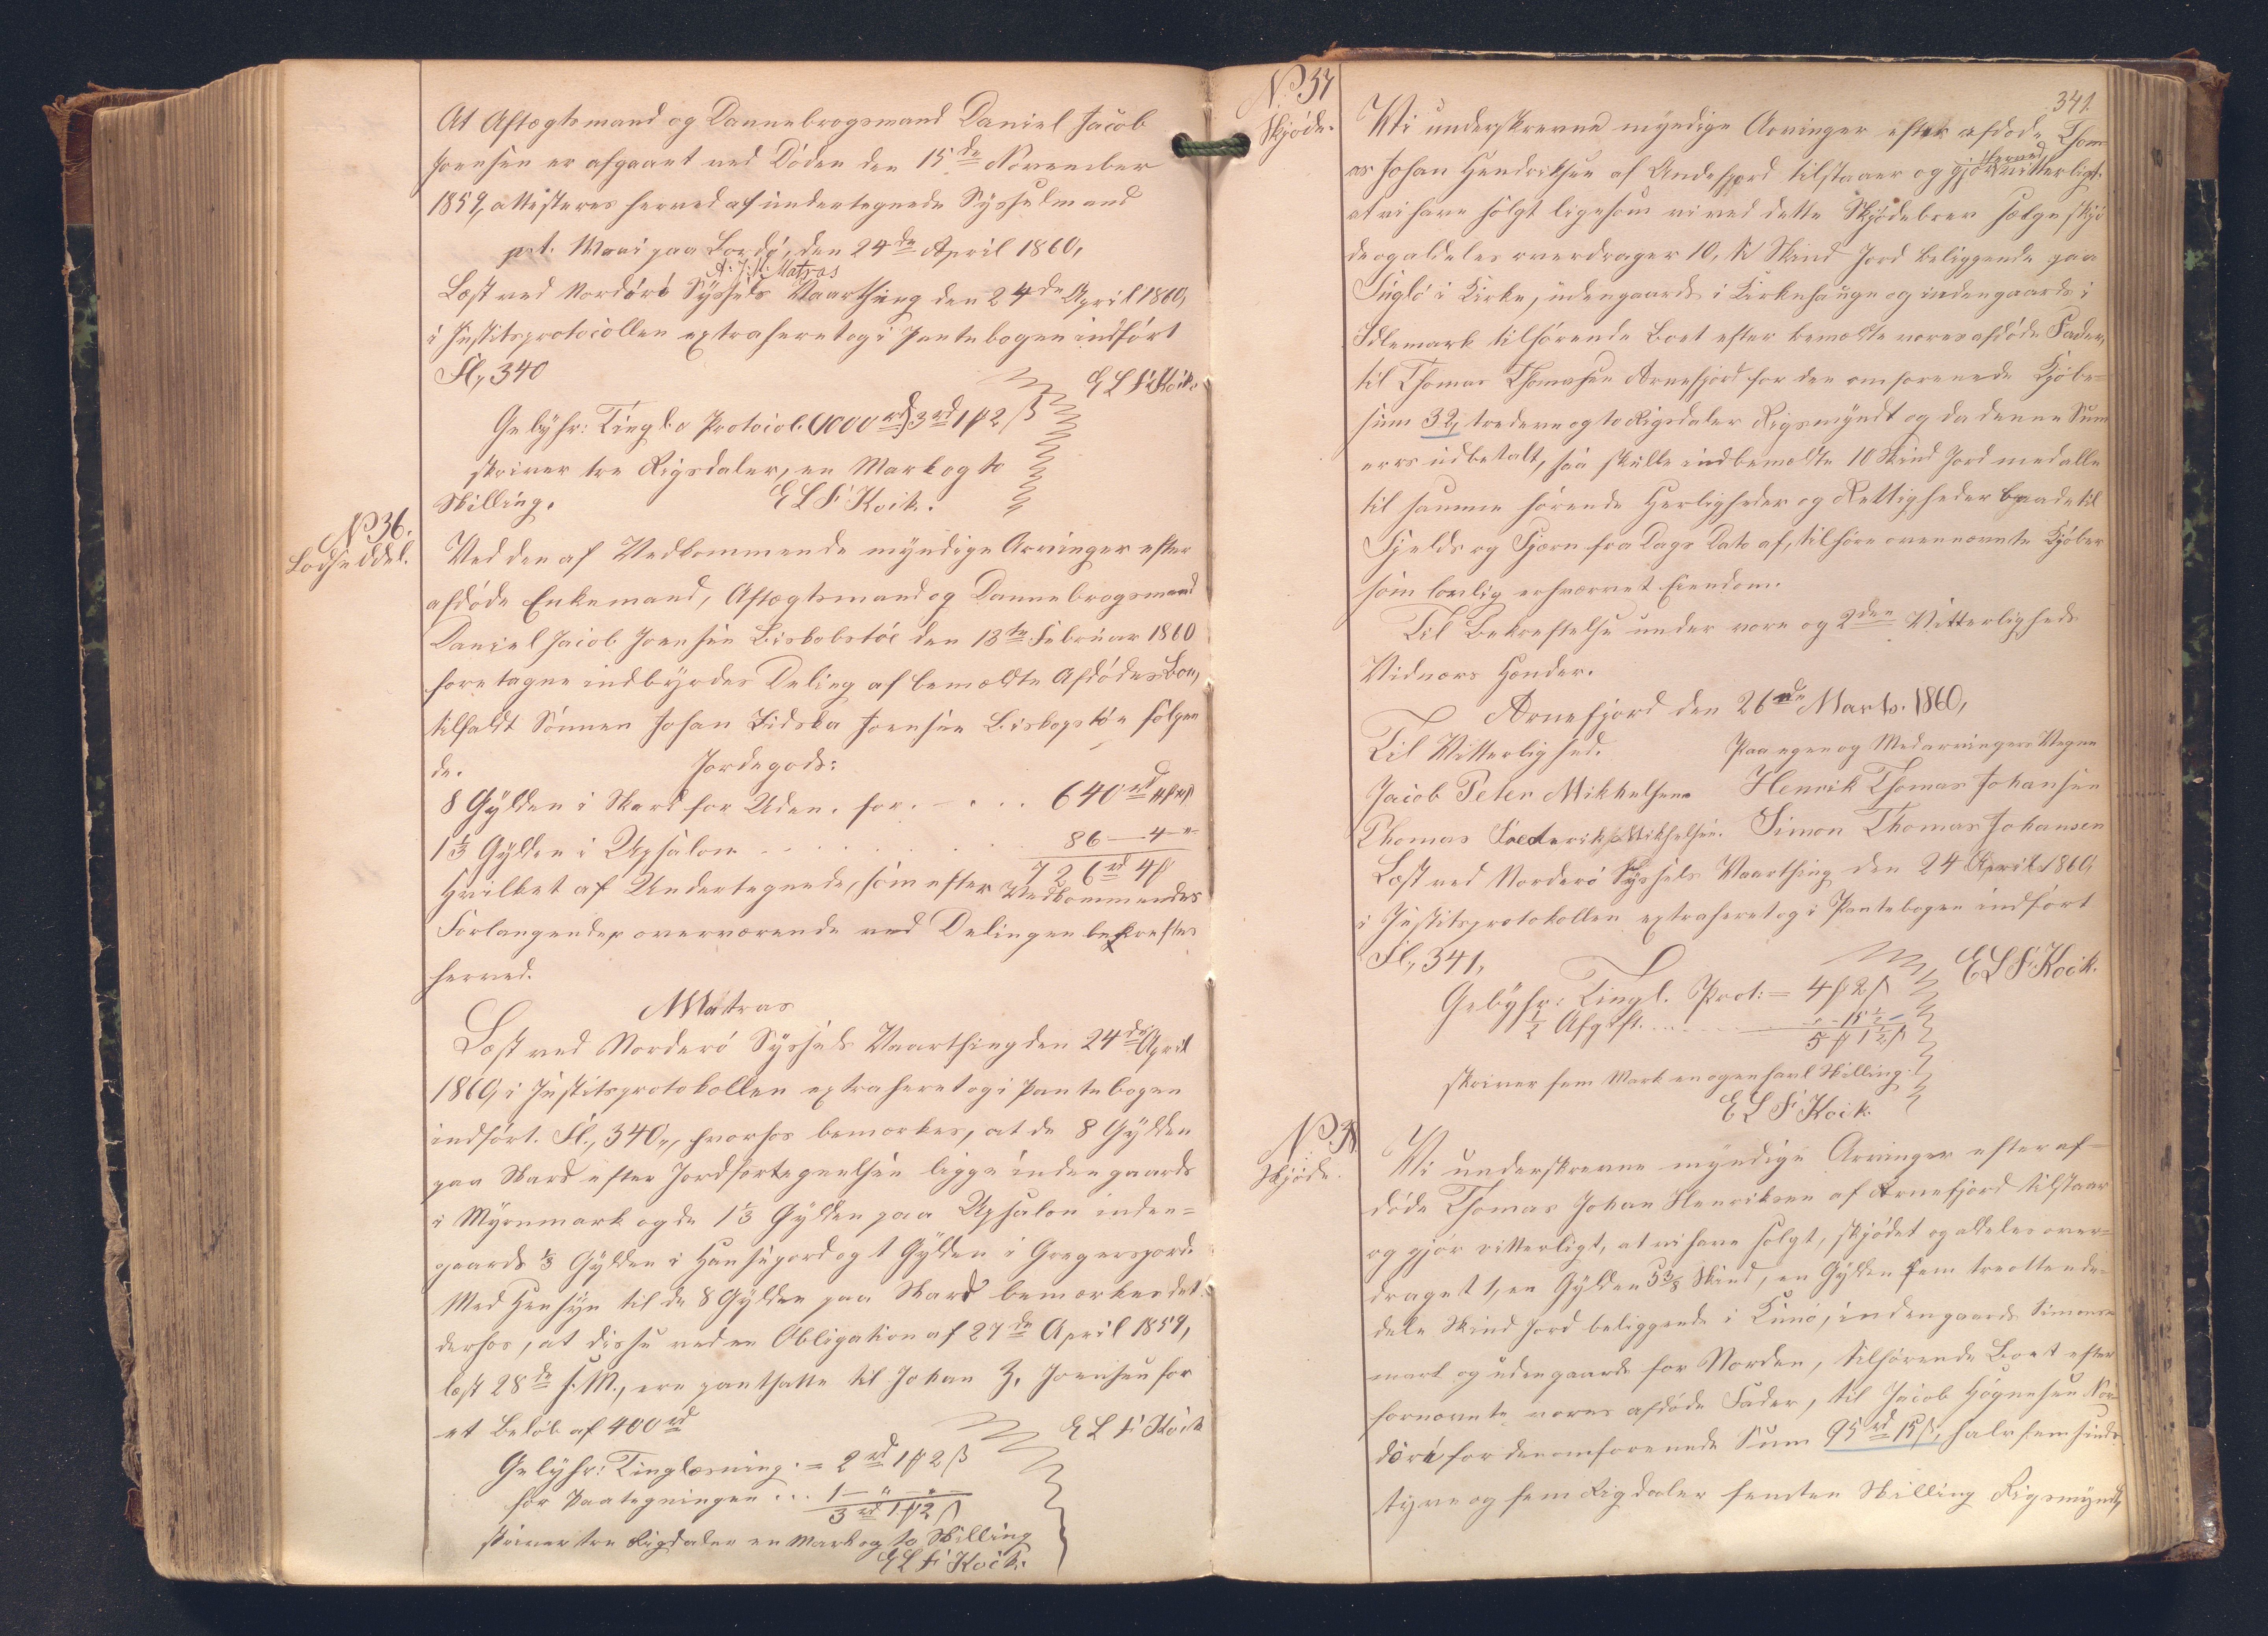 At Aftægtsmand og Dannebrogsmand Daniel Jacob
Joensen er afgaaet ved Døden den 15de November
1859, attesteres herved af undertegnede Sysselmand
p.t. Waai paa Bordø, den 24de April 1860,
A: J: M: Matras
Læst ved Norderø Syssels Vaarthing den 24de April 1860,
i Justitsprotocollen extraheret og i Pantebogen indført
Fl, 340
E L F Kock.
Gebyhr: Tingl. a Protocol. (1000 rd) 3 rd 1 ₻ 2 ß
skriver tre Rigsdaler, en Mark og to
Skilling. E L F Kock.
No 36.
Lodseddel.
Ved den af Vedkommende myndige Arvinger efter
afdøde Enkemand, Aftægtsmand og Dannebrogsmand
Daniel Jacob Joensen Biskobstøe den 13de Februar 1860
foretagne indbyrdes Deling af bemældte Afdødes Boe,
tilfaldt Sønnen Johan Zidska Joensen Biskopstøe følgen
de. Jordegods:
8 Gylden i Skard for Uden. for. . . . 640 rd
1⅓ Gylden i Upsalom . . . . . . 86 — 4 — "
726 rd 4 ₻
Hvilket af Undertegnede, som efter Vedkommendes
Forlangender overværende ved Delingen bekreftes
herved.
Matras
Læst ved Norderø Syssels Vaarthing den 24de April
1860, i Justitsprotokollen extraheret og i Pantebogen
indført. Fl., 340, hvorhos bemærkes, at de 8 Gylden
paa Skard efter Jordfortegnelsen ligge indengaards
i Myrnmark og de 1⅓ Gylden paa Upsalom inden=
gaards ⅓ Gylden i Hansegord og 1 Gylden i Gregersgord.
Med Hensyn til de 8 Gylden paa Skard bemærkes det
derhos, at disse ved en Obligation af 27de April 1859,
læst 28de s. M., ere pantsatte til Johan Z, Joensen for
et Beløb af 400 rd
E L F Kock
Gebyhr: Tinglæsning. = 2 rd 1 ₻ 2 ß
for Paategningen . . . 1 — " — " —
3 rd 1 ₻ 2 ß
skriver tre Rigdaler en Mark og to Skilling
E L F Kock.
341.
No 37
Skjøde.
Wi underskrevne myndige Arvinger efter afdøde Thom
as Johan Hendriksen af Andefjord tilstaaer og gjør herved vitterligt
at vi have solgt ligesom vi ved dette Skjødebrev sælge skjø
de og aldeles overdrager 10, ti Skind Jord beliggende paa
Fuglø i Kirke, udengaards i Kirkehauge og indengaards i
Idlemark tilhørende Boet efter bemældte vores afdøde Fader,
til Thomas Thomasen Arnefjord for den omforenede Kjøbe=
sum 32, tredeve og to Rigsdaler Rigsmyndt og da denne Sum
er os udbetalt, saa skulle indbemældte 10 Skind Jord med alle
til samme hørende Herligheder og Rettigheder baade til
Fjelds og Fjærn fra Dags Dato af, tilhøre ovennævnte Kjøber
som lovlig erhvervet Eiendom.
Til Bekreftelse under vore og 2den Vitterligheds
Vidners Hænder.
Arnefjord den 26de Marts. 1860,
Til Vitterlighed. Paa egen og Medarvingers Vegne
Jacob Peter Mikkelsen. Henrik Thomas Johansen
Thomas Frederik Mikkelsen. Simon Thomas Johansen
Læst ved Norderø Syssels Vaarthing den 24 April 1860,
i Justitsprotokollen extraheret og i Pantebogen indført
Fl, 341,
E L F Kock.
Gebyhr: Tingl. Prot: = 4 ₻ 2 ß
½ Afgift. . . . . . " - 15½ -
5 ₻ 1½ ß
skriver fem Mark en og en halv Skilling
E L F Kock.
No 38
Skjøde.
Vi underskrevne myndige Arvinger efter af=
døde Thomas Johan Henriksen af Arnefjord tilstaar
og gjør vitterligt, at vi have solgt, skjødet og aldeles over=
draget 1, en Gylden 5⅜ Skind, en Gylden fem treottende=
dele Skind Jord beliggende i Kunø, indengaards Simonse
mark og udengaards for Norden, tilhørende Boet efter
fornævnte vores afdøde Fader, til Jacob Høgnesen Nor
døre for den omforenede Sum 95 rd 15 ß, halvfemsinds
tyve og fem Rigdaler femten Skilling Rigsmyndt,